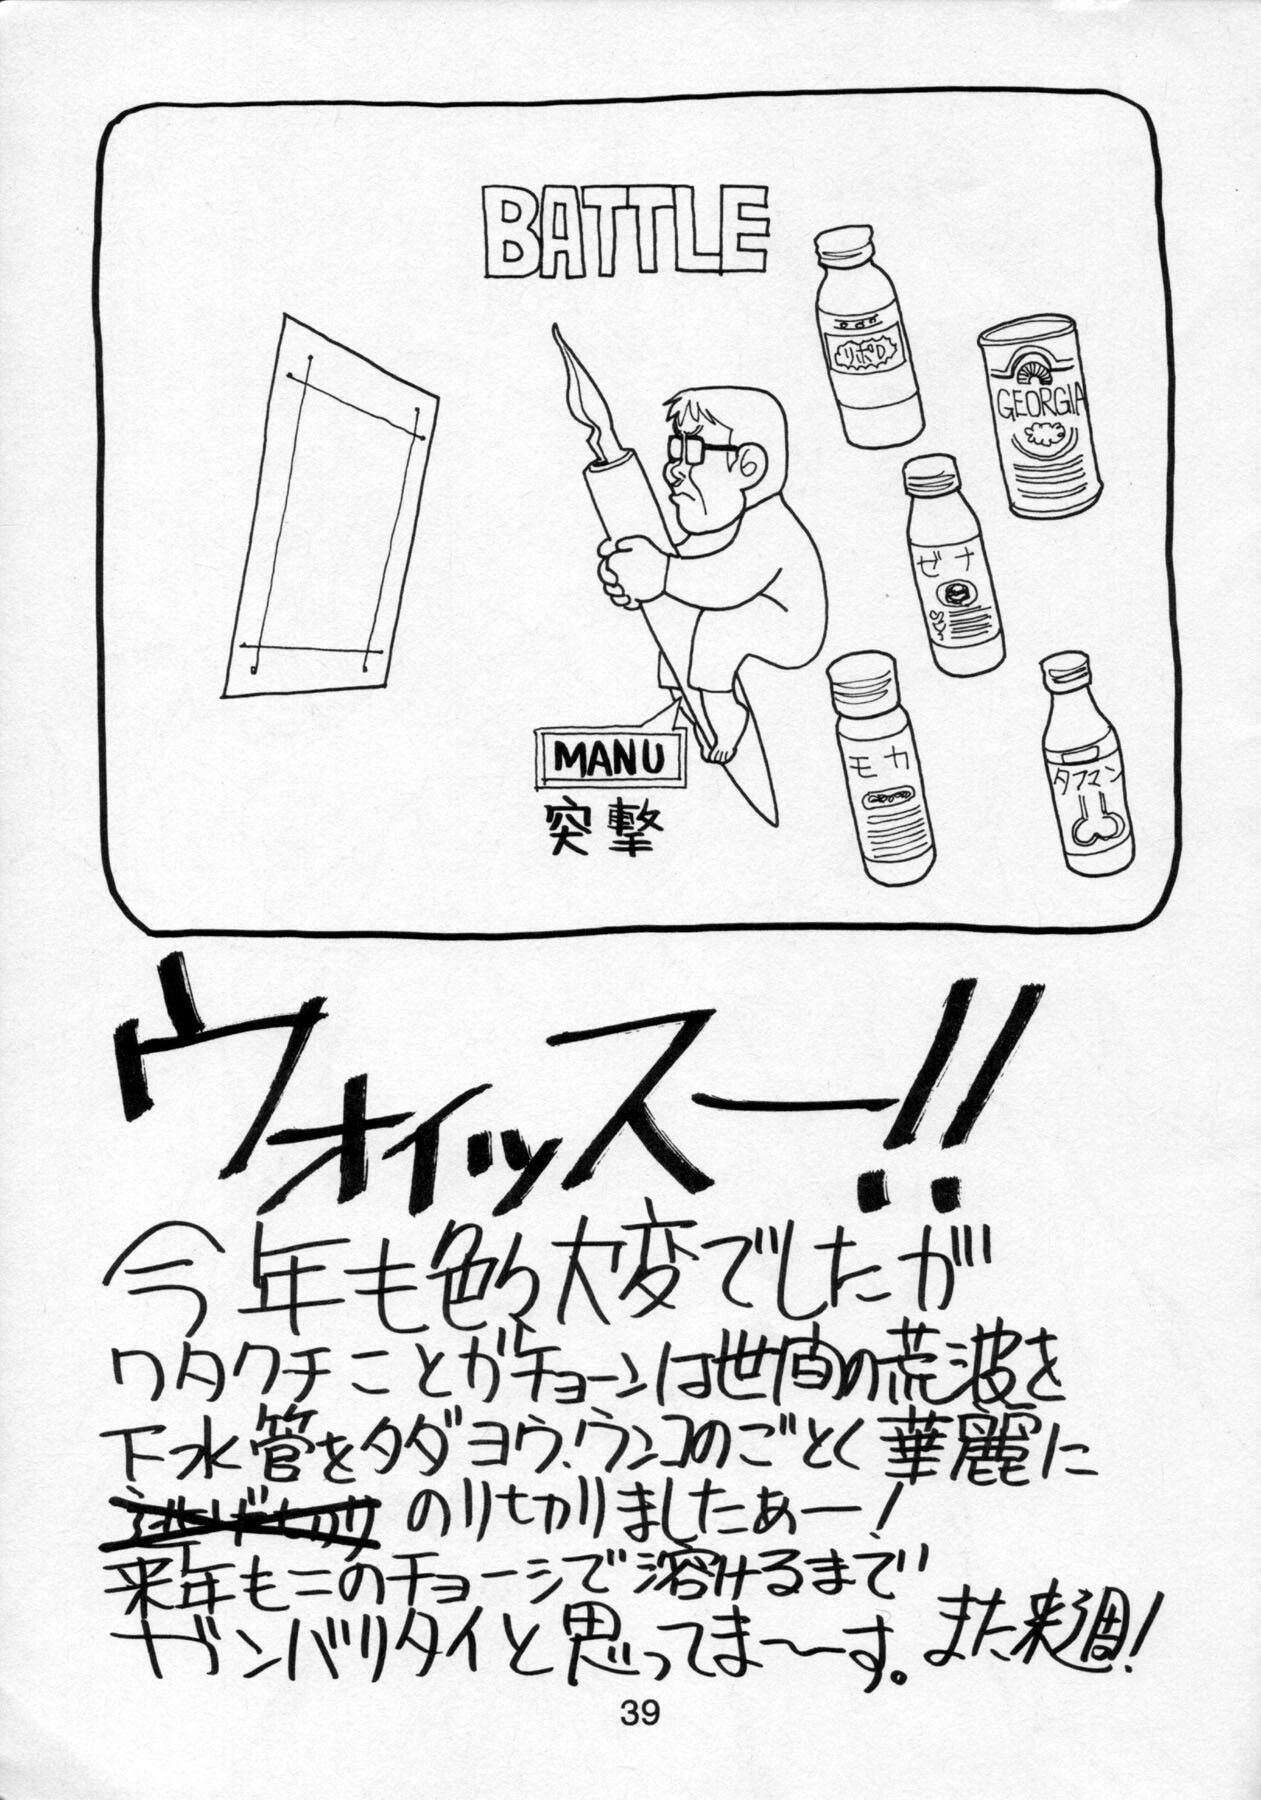 BATTLE
リポD
GEORGIA
ゼナ
モカ
タフマン
MANU
突撃
ウォイッスー!!
今年も色々大変でしたが
ワタクチことガチョーンは世間の荒波を
下水管をタダヨウ、ウンコのごとく華麗に
逃げ切り のりきりましたぁー!
来年もこのチョーシで溶けるまで
ガンバリタイと思ってま〜す。また来週!
39